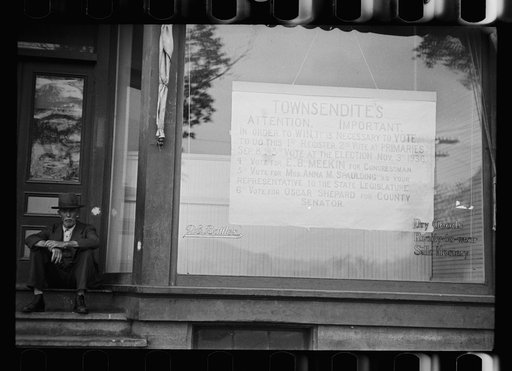 TOWNSENDITE'S
ATTENTION, IMPORTANT.
IN ORDER TO WIN, IT IS NECESSARY TO VOTE
TO DO THIS 1st REGISTER, 2nd VOTE AT PRIMARIES
VOTE AT THE ELECTION NOV. 1936
4 VOTE FOR E. B. MEEK FOR CONGRESSMAN
5 VOTE FOR MRS. ANNA M. SPAULDING AS YOUR
REPRESENTATIVE TO THE STATE LEGISLATURE
6 VOTE FOR OSCAR SHEPARD FOR COUNTY
SENATOR.
Dry Goods
Ready-to-wear